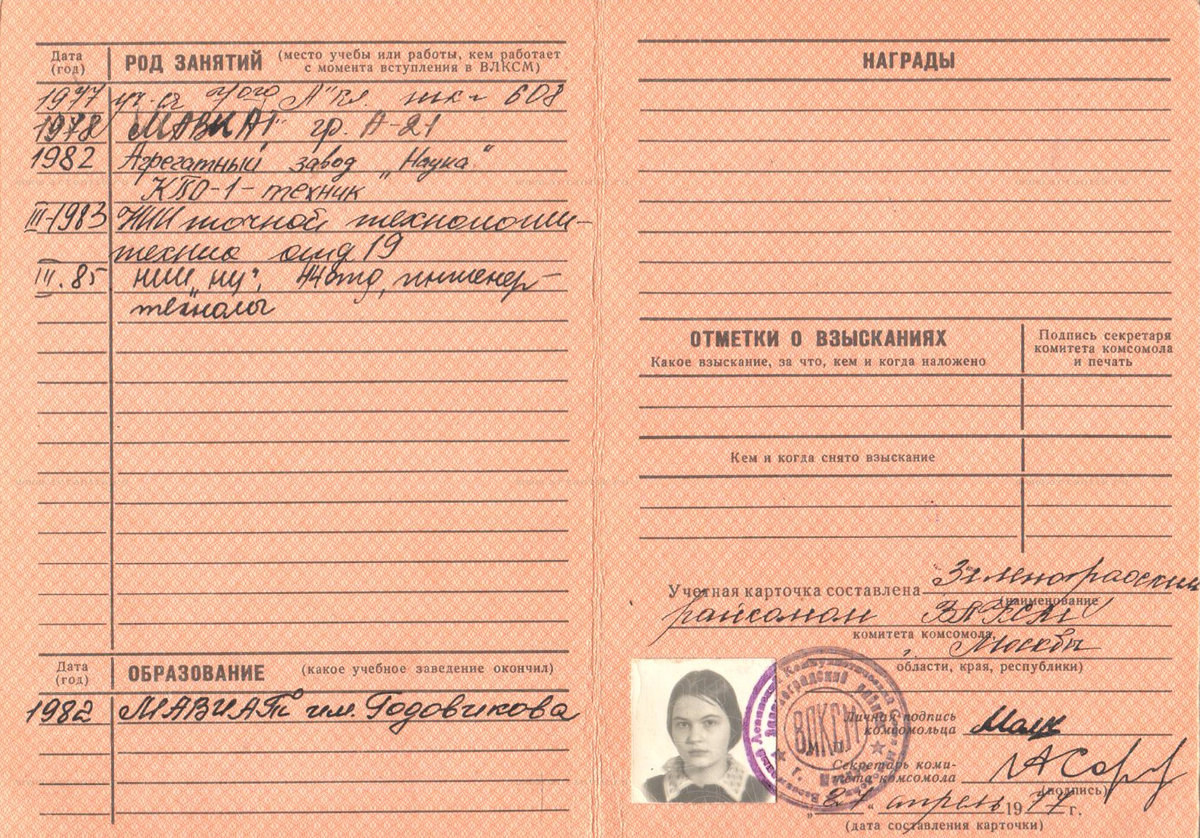 Дата (год)
РОД ЗАНЯТИЙ (место учебы или работы, кем работает с момента вступления в ВЛКСМ)
1977 уч-ся 7ого "А" кл. шк-и 608
1978 МАВИАТ гр. А-21
1982 Агрегатный завод „Наука"
КПО-1-техник
III-1983 НИИ точной технологии-
техник отд 19
III.85 НИИ „НЦ", 44 отд, инженер-
технолог
Дата (год)
ОБРАЗОВАНИЕ (какое учебное заведение окончил)
1982 МАВИАТ им. Годовикова
НАГРАДЫ
ОТМЕТКИ О ВЗЫСКАНИЯХ
Какое взыскание, за что, кем и когда наложено
Подпись секретаря
комитета комсомола
и печать
Кем и когда снято взыскание
Учетная карточка составлена Зеленоградским
(наименование
райкомом ВЛКСМ
комитета комсомола,
г. Москвы
области, края, республики)
ВЛКСМ
Личная подпись
комсомольца
Секретарь коми-
тета комсомола
(подпись)
„27" апрель 1977 г.
(дата составления карточки)